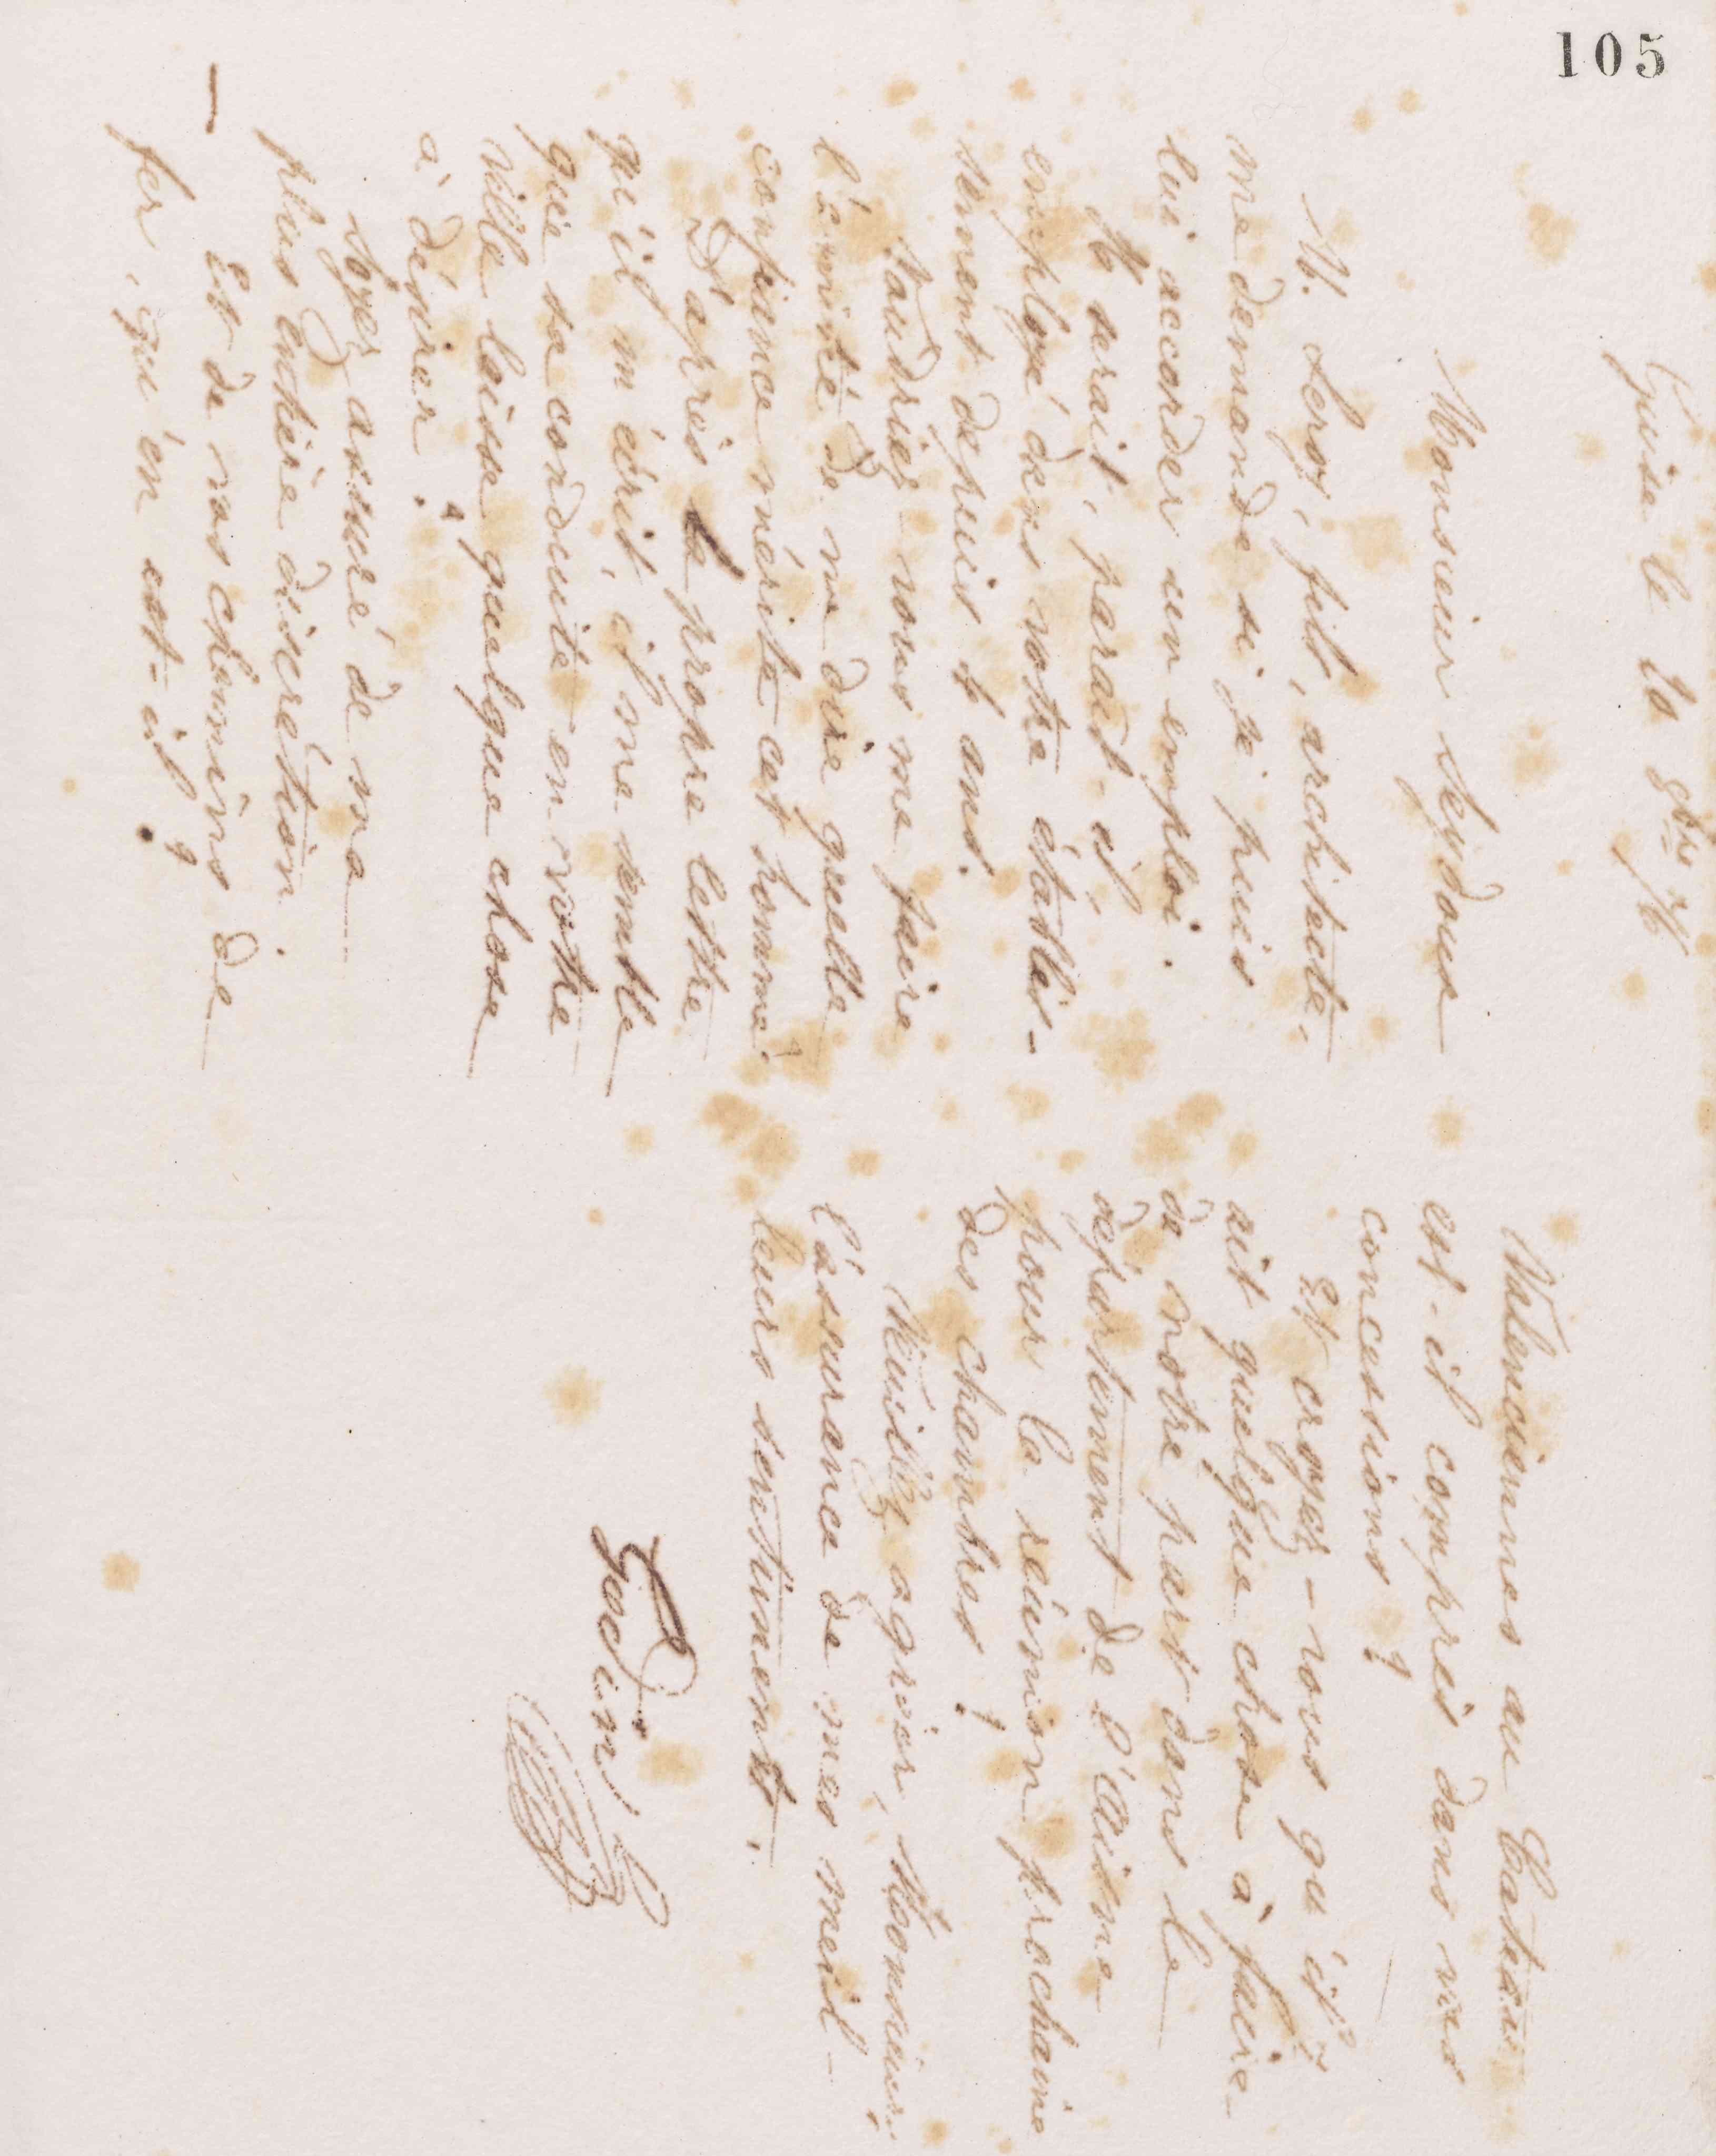 105
Guise le 10 9bre 76
Monsieur Seydoux
M. Leroy, fils, architecte,
me demande si je puis
lui accorder un emploi.
Il serait, parait-il,
employé dans votre établis-
sement depuis 6 ans.
Voudriez vous me faire
l'amitié de me dire quelle
confiance mérite cet homme.
D'après sa propre lettre
qu'il m'écrit, il me semble
que sa conduite en votre
ville laisse quelque chose
à désirer.
Soyez assuré de ma
plus entière discrétion.
Et de nos chemins de
fer, qu'en est-il ?
Valenciennes au Cateau
est-il compris dans nos
concessions ?
Et croyez-vous qu'il y
ait quelque chose à faire
de notre part dans le
département de l'Aisne
pour la réunion prochaine
des chambres ?
Veuillez agréer, Monsieur,
l'assurance de mes meil-
leurs sentiments.
Godin